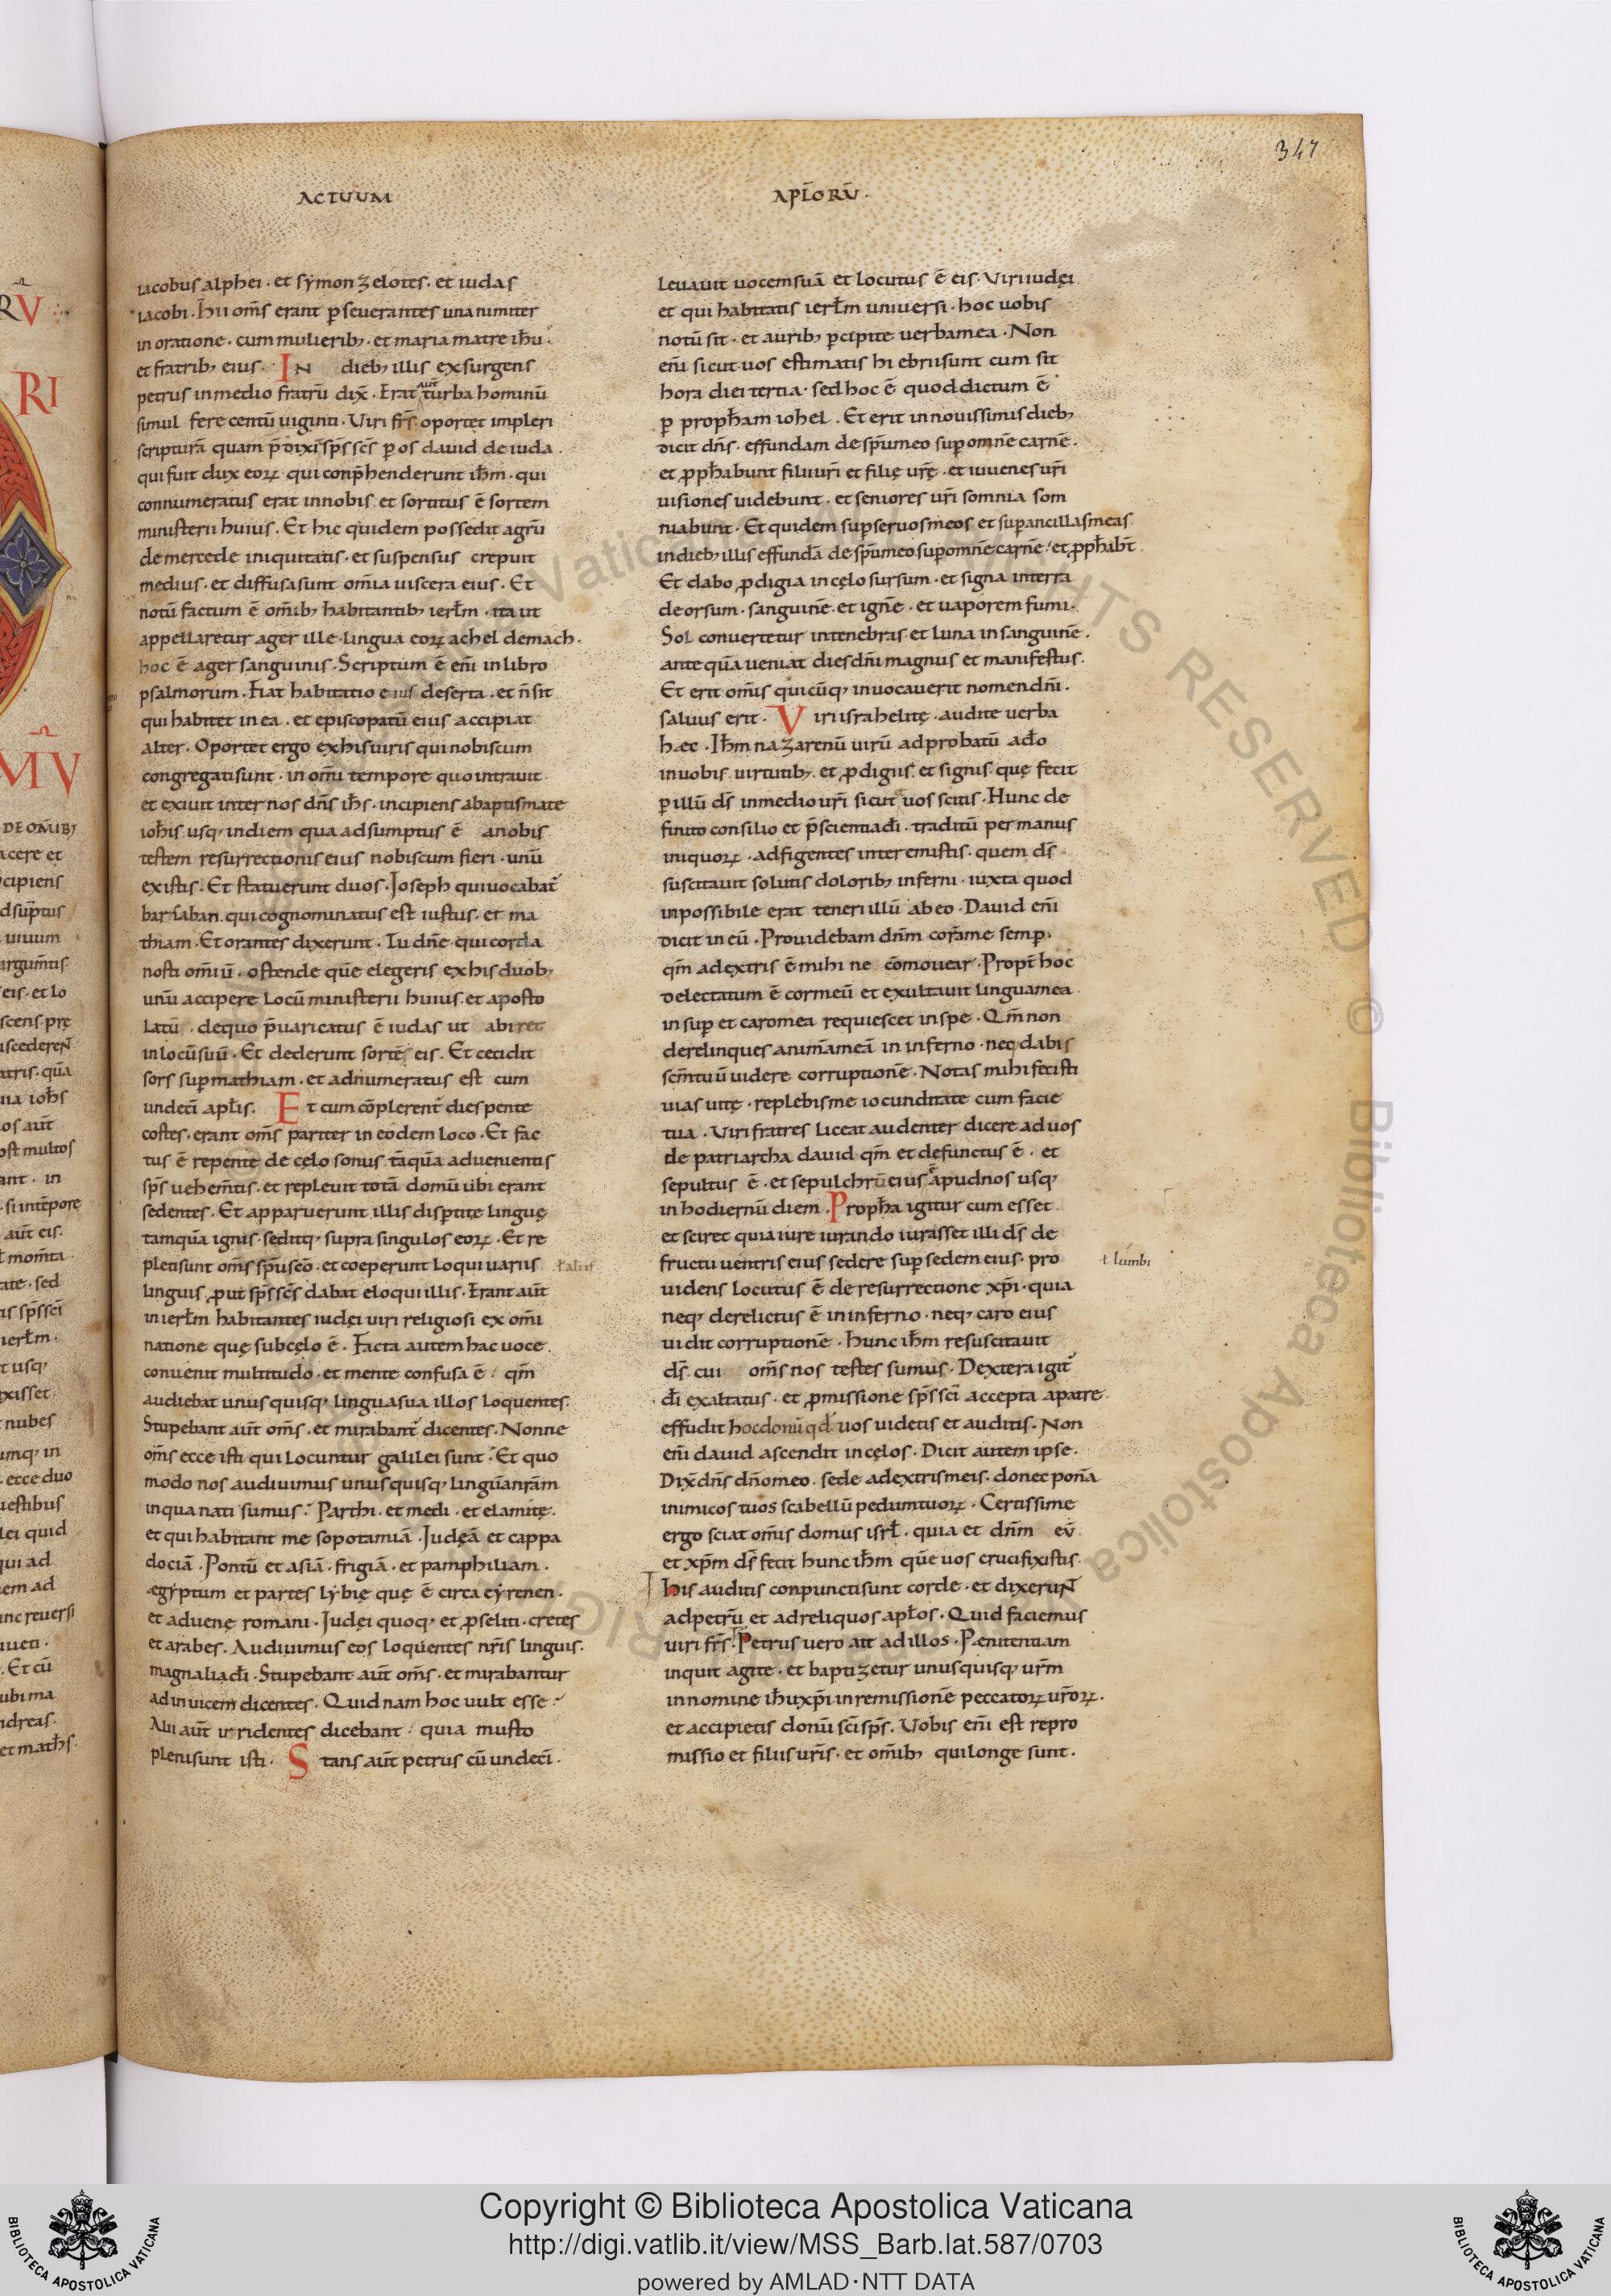 347
ACTUUM
APL̄ORŪ.
iacobus alphei · et sẏmon zelotes · et iudas
iacobi · Hii om̄s erant p̱seuerantes unanimiter
in oratione · cum mulierib; · et maria matre ih̄u ·
et fratrib; eius · IN dieb; illis exsurgens
petrus in medio fratrū dix̄ · Erat aut̄ turba hominū
simul fere centū uiginti · Viri fr̄s oportet impleri
scripturā quam p̄dixit sp̄s sc̄s p̱ os dauid de iuda
qui fuit dux eoꝝ qui conp̄henderunt ih̄m · qui
connumeratus erat in nobis et sortitus ē sortem
ministerii huius · Et hic quidem possedit agrū
de mercede iniquitatis · et suspensus crepuit
medius · et diffusa sunt om̄ia uiscera eius · Et
notū factum ē om̄ib; habitantib; ierl̄m · ita ut
appellaretur ager ille lingua eoꝝ acheldemach ·
hoc ē ager sanguinis · Scriptum ē eni̅ in libro
psalmorum · Fiat habitatio eius deserta · et n̄ sit
qui habitet in ea · et episcopatū eius accipiat
alter · Oportet ergo ex his uiris qui nobiscum
congregati sunt · in om̄i tempore quo intrauit
et exiuit inter nos dn̄s ih̄s · incipiens a baptismate
ioh̄is usq; in diem qua adsumptus ē a nobis
testem resurrectionis eius nobiscum fieri · unū
ex istis · Et statuerunt duos · Ioseph qui uocabat᷑
barsaban · qui cognominatus est iustus · et ma
thiam · Et orantes dixerunt · Tu dn̄e qui corda
nosti om̄iū · ostende quē elegeris ex his duob;
unū accipere locū ministerii huius · et aposto
latū · de quo p̄uaricatus ē iudas ut abiret
in locū suū · Et dederunt sortē eis · Et cecidit
sors sup̱ mathiam · et adnumeratus est cum
undeci̅ apl̄is · Et cum cōplerent᷑ dies pente
costes · erant om̄s pariter in eodem loco · Et fac
tus ē repente de cęlo sonus tāquā aduenientis
sp̄s uehem̄tis · et repleuit totā domū ubi erant
sedentes · Et apparuerunt illis disp̱tite linguę
tamquā ignis · seditq; supra singulos eoꝝ · Et re
pleti sunt om̄s sp̄u sc̄o · et coeperunt loqui uariis ł aliis
linguis ꝓut sp̄s sc̄s dabat eloqui illis · Erant aut̄
in ierl̄m habitantes iudęi uiri religiosi ex om̄i
natione quę sub cęlo ē · Facta autem hac uoce
conuenit multitudo · et mente confusa ē · qm̄
audiebat unusquisq; lingua sua illos loquentes ·
Stupebant aut̄ om̄s · et mirabant᷑ dicentes · Nonne
om̄s ecce isti qui locuntur galilei sunt · Et quo
modo nos audiuimus unusquisq; linguā nr̄am
in qua nati sumus · Parthi · et medi · et elamitę ·
et qui habitant mesopotamiā · Iudęā et cappa
dociā · Pontū et asiā · frigiā · et pamphiliam ·
ęgẏptum et partes lẏbię quę ē circa cẏrenen ·
et aduenę romani · Iudęi quoq; et ꝓseliti · cretes
et arabes · Audiuimus eos loquentes nr̄is linguis ·
magnalia dī · Stupebant aut̄ om̄s · et mirabantur
ad inuicem dicentes · Quidnam hoc uult esse ·
Alii aut̄ irridentes dicebant · quia musto
pleni sunt isti · Stans aut̄ petrus cū undeci̅ ·
leuauit uocem suā et locutus ē eis · Viri iudęi
et qui habitatis ierl̄m uniuersi · hoc uobis
notū sit · et aurib; p̱cipite uerba mea · Non
eni̅ sicut uos estimatis hi ebrii sunt cum sit
hora diei tertia · sed hoc ē quod dictum ē
p̱ proph̄am iohel · Et erit in nouissimis dieb;
dicit dn̄s · effundam de sp̄u meo sup̱ omnē carnē ·
et ꝓph̄abunt filii ur̄i et filię ur̄ę · et iuuenes ur̄i
uisiones uidebunt · et seniores ur̄i somnia som
niabunt · Et quidem sup̱ seruos meos et sup̱ ancillas meas
in dieb; illis effundā de sp̄u meo sup̱ omnē carnē · et ꝓph̄abt̄ ·
Et dabo ꝓdigia in cęlo sursum · et signa in terra
deorsum · sanguinē · et ignē · et uaporem fumi ·
Sol conuertetur in tenebras et luna in sanguinē ·
ante quā ueniat dies dn̄i magnus et manifestus ·
Et erit om̄is quicūq; inuocauerit nomen dn̄i ·
saluus erit · Viri israhelitę · audite uerba
hæc · Ih̄m nazarenū uirū adprobatū a dō
in uobis uirtutib; · et ꝓdigiis et signis quę fecit
p̱ illū ds̄ in medio ur̄i sicut uos scitis · Hunc de
finito consilio et p̄scientia dī · traditū per manus
iniquoꝝ · adfigentes interemistis · quem ds̄
suscitauit solutis dolorib; inferni · iuxta quod
inpossibile erat teneri illū ab eo · Dauid eni̅
dicit in eū · Prouidebam dn̄m corā me semp̱ ·
qm̄ a dextris ē mihi ne cōmouear · Propt̄ hoc
delectatum ē cor meū et exultauit lingua mea
insup̱ et caro mea requiescet in spe · Qm̄ non
derelinques animā meā in inferno · neq; dabis
sc̄m tuū uidere corruptionē · Notas mihi fecisti
uias uitę · replebis me iocunditate cum facie
tua · Viri fratres liceat audenter dicere ad uos
de patriarcha dauid qm̄ et defunctus ē · et
sepultus ē · et sepulchrū eius ē apud nos usq;
in hodiernū diem · Proph̄a igitur cum esset
et sciret quia iure iurando iurasset illi ds̄ de
fructu uentris eius sedere sup̱ sedem eius · pro ł lumbi
uidens locutus ē de resurrectione xp̄i · quia
neq; derelictus ē in inferno · neq; caro eius
uidit corruptionē · Hunc ih̄m resuscitauit
ds̄ cui om̄s nos testes sumus · Dextera igit᷑
dī exaltatus · et ꝓmissione sp̄s sc̄i accepta a patre
effudit hoc donū qd̄ uos uidetis et auditis · Non
eni̅ dauid ascendit in cęlos · Dicit autem ipse ·
Dix̄ dn̄s dn̄o meo · sede a dextris meis · donec ponā
inimicos tuos scabellū pedum tuoꝝ · Certissime
ergo sciat om̄is domus isrl̄ · quia et dn̄m eū
et xp̄m ds̄ fecit hunc ih̄m quē uos crucifixistis ·
His auditis conpuncti sunt corde · et dixeruN̄
ad petrū et ad reliquos apl̄os · Quid faciemus
uiri fr̄s · Petrus uero ait ad illos · Pęnitentiam
inquit agite · et baptizetur unusquisq; ur̄m
in nomine ih̄u xp̄i in remissionē peccatoꝝ ur̄oꝝ ·
et accipietis donū sc̄i sp̄s · Vobis eni̅ est repro
missio et filiis ur̄is · et om̄ib; qui longe sunt ·
Copyright © Biblioteca Apostolica Vaticana
http://digi.vatlib.it/view/MSS_Barb.lat.587/0703
powered by AMLAD·NTT DATA
BIBLIOTECA APOSTOLICA VATICANA
BIBLIOTECA APOSTOLICA VATICANA